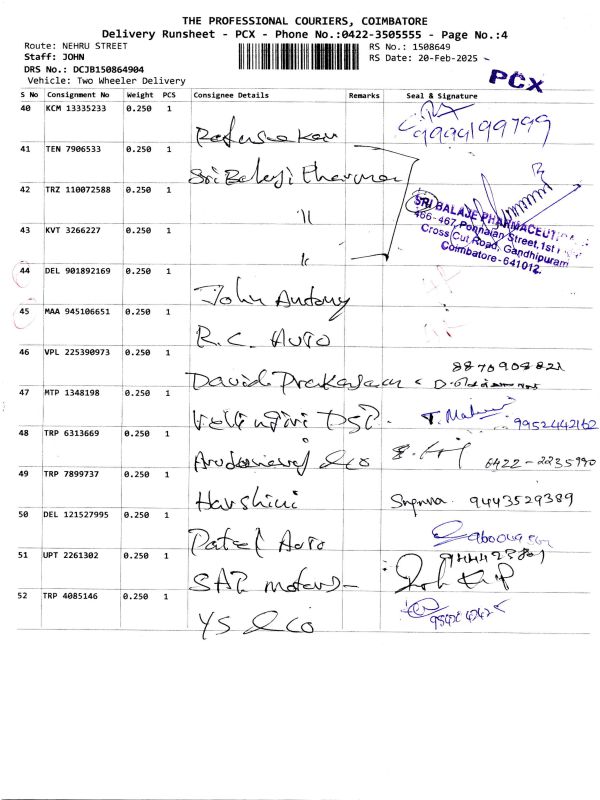 THE PROFESSIONAL COURIERS, COIMBATORE
Delivery Runsheet - PCX - Phone No.:0422-3505555 - Page No.:4
Route: NEHRU STREET
RS No.: 1508649
Staff: JOHN
RS Date: 20-Feb-2025
DRS No.: DCJB150864904
Vehicle: Two Wheeler Delivery
PCX
S No Consignment No Weight PCS Consignee Details Remarks Seal & Signature
40 KCM 13335233 0.250 1
9999199799
41 TEN 7906533 0.250 1
Sri Balaji Pharma
42 TRZ 110072588 0.250 1
"
SRI BALAJE PHARMACEUTI
466-467, Ponnaian Street, 1st
Cross Cut Road, Gandhipuram
Coimbatore-641012.
43 KVT 3266227 0.250 1
"
44 DEL 901892169 0.250 1
John Antony
45 MAA 945106651 0.250 1
R.C. Auto
46 VPL 225390973 0.250 1
8870908821
David Prakasam
47 MTP 1348198 0.250 1
DSP.
9952442162
48 TRP 6313669 0.250 1
& co
0422-2235990
49 TRP 7899737 0.250 1
Harshini
9443529389
50 DEL 121527995 0.250 1
Patel Auto
51 UPT 2261302 0.250 1
SAP motors
52 TRP 4085146 0.250 1
YS & co